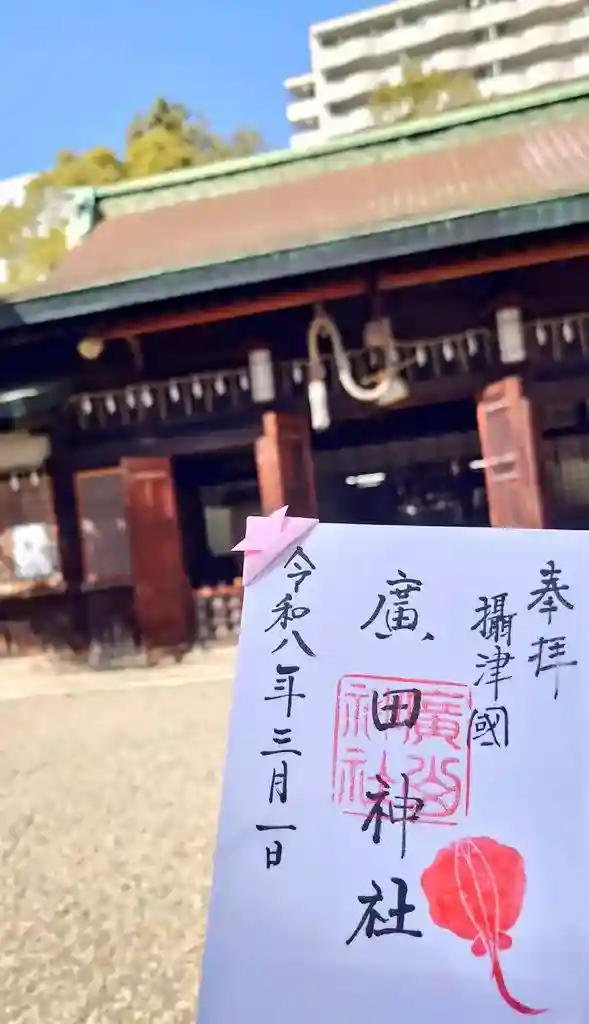 奉拝
攝津國
廣田神社
廣田神社
令和八年三月一日